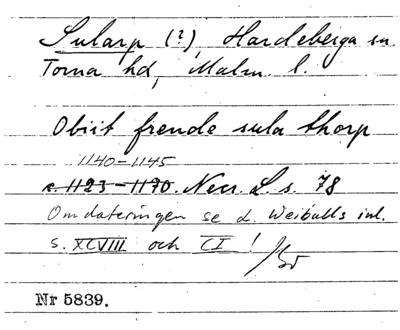 Sularp (?), Hardeberga sn
Torna hd, Malm. l.
Obiit frende sula thorp
1140-1145
c. 1123-1170. Necr. L. s. 78
Om dateringen se L. Weibulls inl.
s. XCVIII och CI !
Nr 5839.